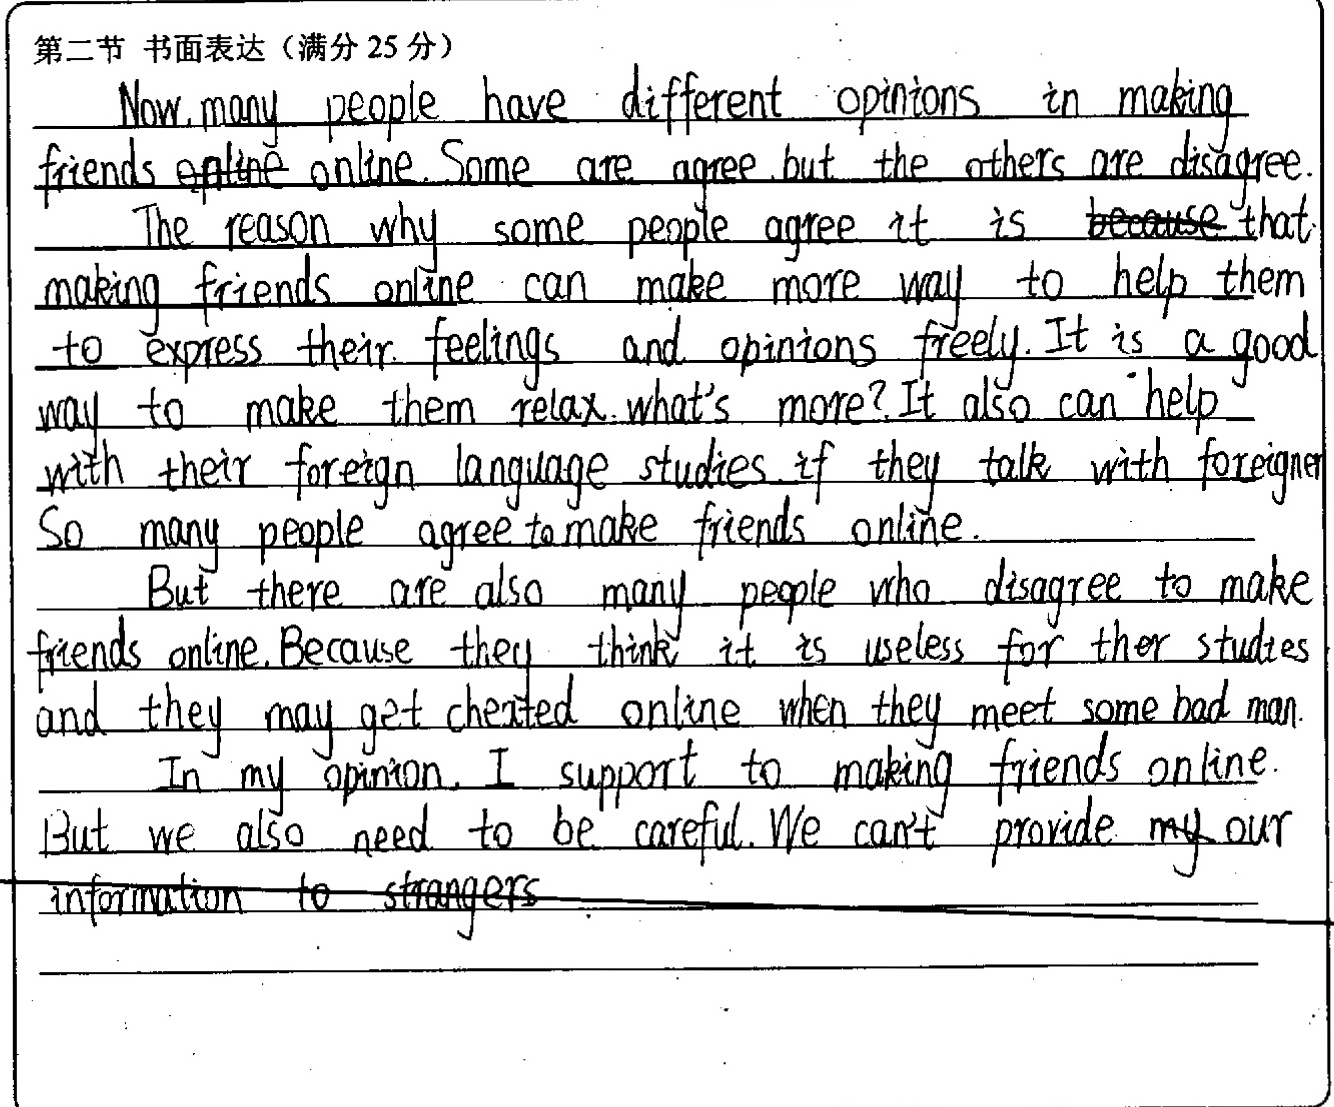 第二节 书面表达（满分 25 分）
Now, many people have different opinions in making
friends online online. Some are agree, but the others are disagree.
The reason why some people agree it is because that
making friends online can make more way to help them
to express their feelings and opinions freely. It is a good
way to make them relax. what's more? It also can help
with their foreign language studies. if they talk with foreigner
So many people agree to make friends online.
But there are also many people who disagree to make
friends online. Because they think it is useless for ther studies
and they may get cheated online when they meet some bad man.
In my opinion, I support to making friends online.
But we also need to be careful. We can't provide my our
information to strangers